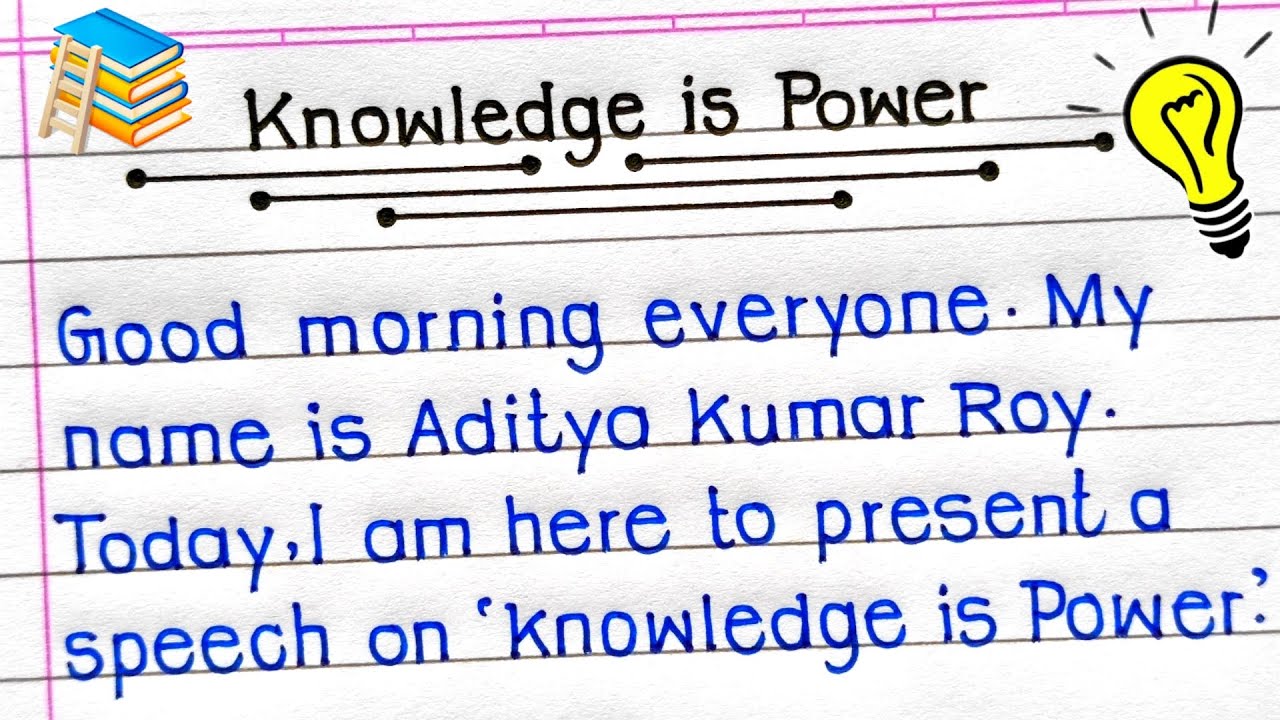 Knowledge is Power
Good morning everyone. My
name is Aditya Kumar Roy.
Today, I am here to present a
speech on 'Knowledge is Power'.